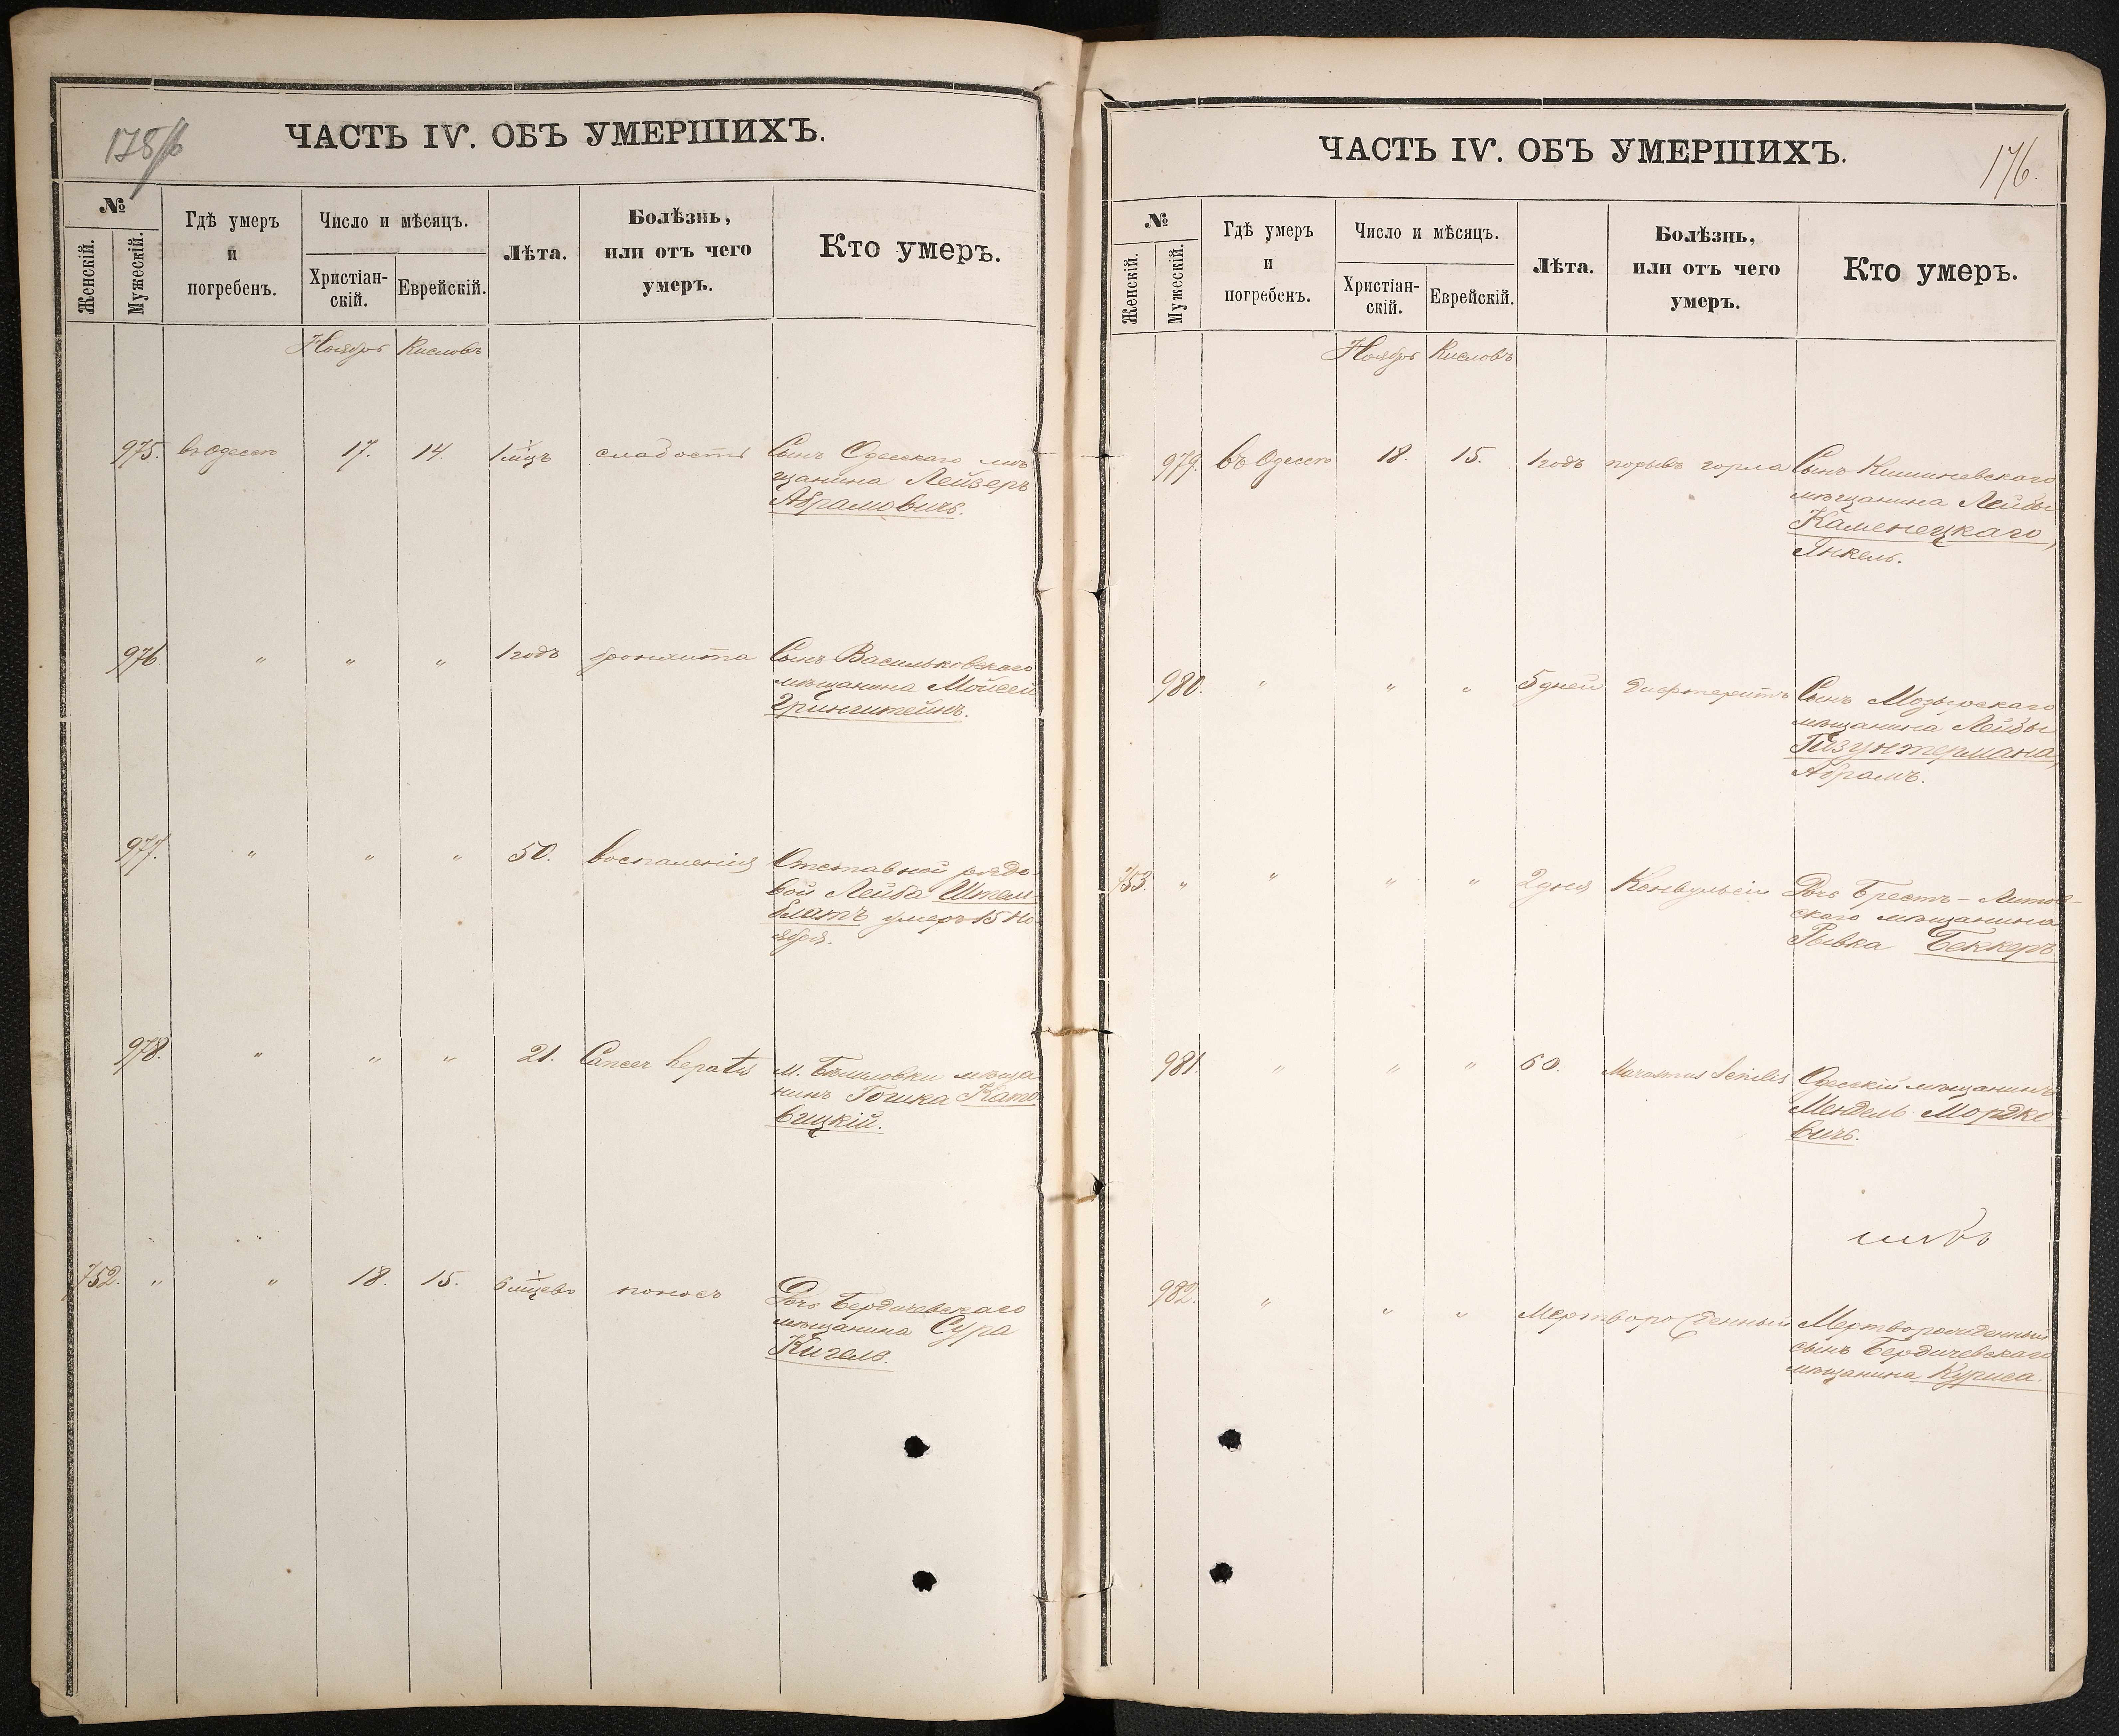 ЧАСТЬ IV. ОБЪ УМЕРШИХЪ.
№
Женскій.
Мужескій.
Гдѣ умеръ
и
погребенъ.
Число и мѣсяцъ.
Христіан-
скій.
Еврейскій.
Лѣта.
Болѣзнь,
или отъ чего
умеръ.
Кто умеръ.
Ноябрь Кислевъ
975. въ Одессѣ 17. 14. 1 мцъ слабость Сынъ Одесскаго мѣ
щанина Лейзеръ
Абрамовичъ.
976 " " " 1 годъ бронхита Сынъ Васильковскаго
мѣщанина Мойсей
Гринштейнъ.
977. " " " 50. воспаленія Отставной рядо
вой Лейба
блатъ умеръ 15 Но
ября.
978. " " " 21. Cancer hepatis м. мѣща
нинъ Гошка Като
вицкій.
752. " " 18. 15. 6 мцевъ поносъ Дочь Бердичевскаго
мѣщанина Сура
Кигель.
ЧАСТЬ IV. ОБЪ УМЕРШИХЪ.
176.
№
Женскій.
Мужескій.
Гдѣ умеръ
и
погребенъ.
Число и мѣсяцъ.
Христіан-
скій.
Еврейскій.
Лѣта.
Болѣзнь,
или отъ чего
умеръ.
Кто умеръ.
Ноябрь Кислевъ
979. въ Одессѣ 18. 15. 1 годъ горла Сынъ Кишиневскаго
мѣщанина Лейбы
Каменецкаго,
Янкель.
980. " " " 5 дней дифтеритъ Сынъ Мозырскаго
мѣщанина Лейбы
Гизунтермана,
Абрамъ.
753. " " " " 2 дня Конвульсіи Дочь Брестъ-Литов-
скаго мѣщанина
Рывка Беккеръ
981. " " " 60. Marasmus Senilis Одесскій мѣщанинъ
Мендель Мордко-
вичъ.
982. " " " Мертворожденный Мертворожденный
сынъ Бердичевскаго
мѣщанина Куриса.